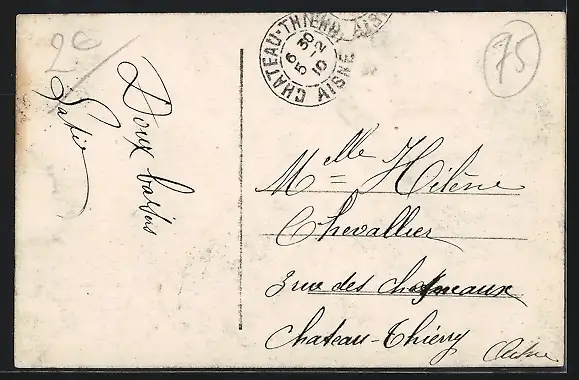 26
75
CHATEAU-THIERRY
6 30
5 2
10
AISNE
Doux baisers
Mlle Hélène
Chevallier
3 rue des
Chateau-Thierry
Aisne